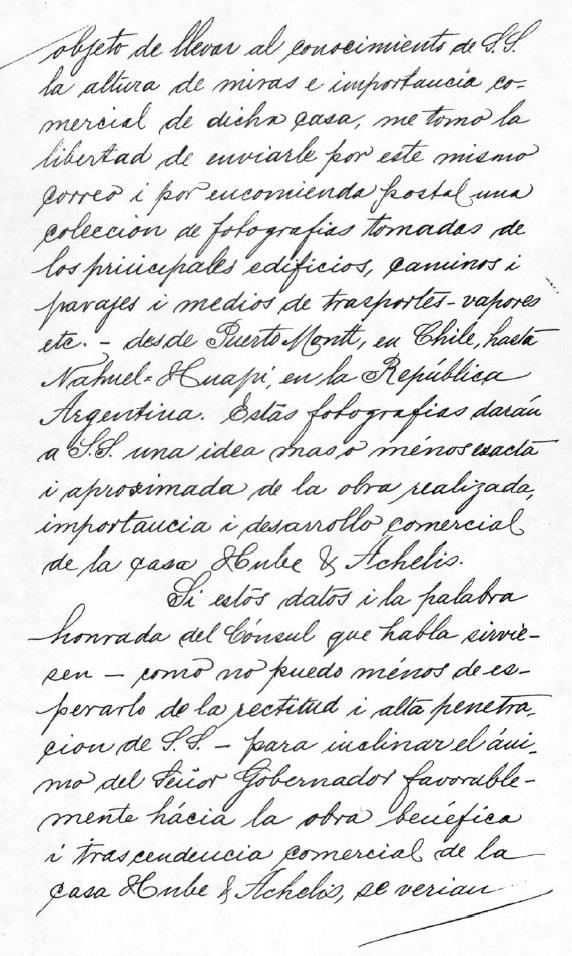 objeto de llevar al conocimiento de S.S.
la altura de miras e importancia co-
mercial de dicha casa, me tomo la
libertad de enviarle por este mismo
correo i por encomienda postal una
coleccion de fotografias tomadas de
los principales edificios, caminos i
parajes i medios de trasportes - vapores
etc. - desde Puerto Montt, en Chile, hasta
Nahuel=Huapi, en la República
Argentina. Estas fotografias darán
a S.S. una idea mas o ménos exacta
i aproximada de la obra realizada,
importancia i desarrollo comercial
de la casa Hube & Achelis.
Si estos datos i la palabra
honrada del Cónsul que habla sirvie-
sen - como no puedo ménos de es-
perarlo de la rectitud i alta penetra-
cion de S.S. - para inclinar el áni-
mo del Señor Gobernador favorable-
mente hácia la obra benéfica
i trascendencia comercial de la
casa Hube & Achelis, se verian